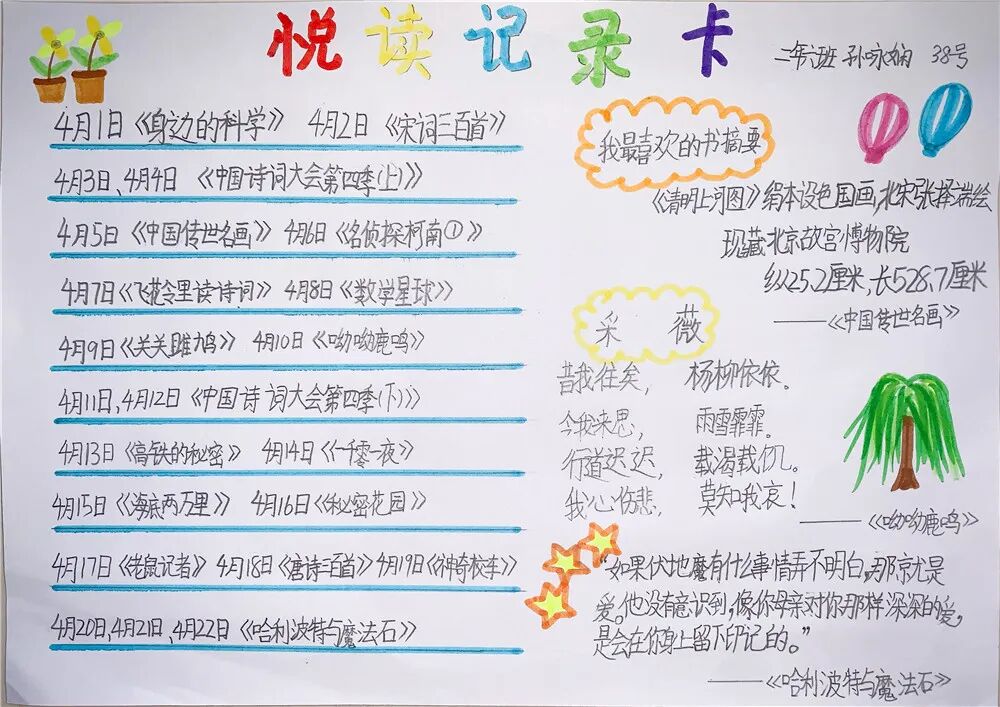 悦读记录卡
孙咏娴 38号
4月1日《身边的科学》 4月2日《宋词三百首》
4月3日、4月4日 《中国诗词大会第四季(上)》
4月5日《中国传世名画》 4月6日《名侦探柯南①》
4月7日《飞花令里读诗词》 4月8日《数学星球》
4月9日《关关雎鸠》 4月10日《呦呦鹿鸣》
4月11日,4月12日《中国诗词大会第四季(下)》
4月13日《高铁的秘密》 4月14日《一千零一夜》
4月15日《海底两万里》 4月16日《秘密花园》
4月17日《老鼠记者》 4月18日《唐诗三百首》4月19日《神奇校车》
4月20日,4月21日,4月22日《哈利波特与魔法石》
我最喜欢的书摘要
《清明上河图》绢本设色国画,北宋张择端绘
现藏北京故宫博物院
纵25.2厘米,长528.7厘米
——《中国传世名画》
采 薇
昔我往矣, 杨柳依依。
今我来思, 雨雪霏霏。
行道迟迟, 载渴载饥。
我心伤悲, 莫知我哀!
——《呦呦鹿鸣》
“如果伏地魔有什么事情弄不明白,那就是
爱。他没有意识到,像你母亲对你那样深深的爱,
是会在你身上留下印记的。”
——《哈利波特与魔法石》